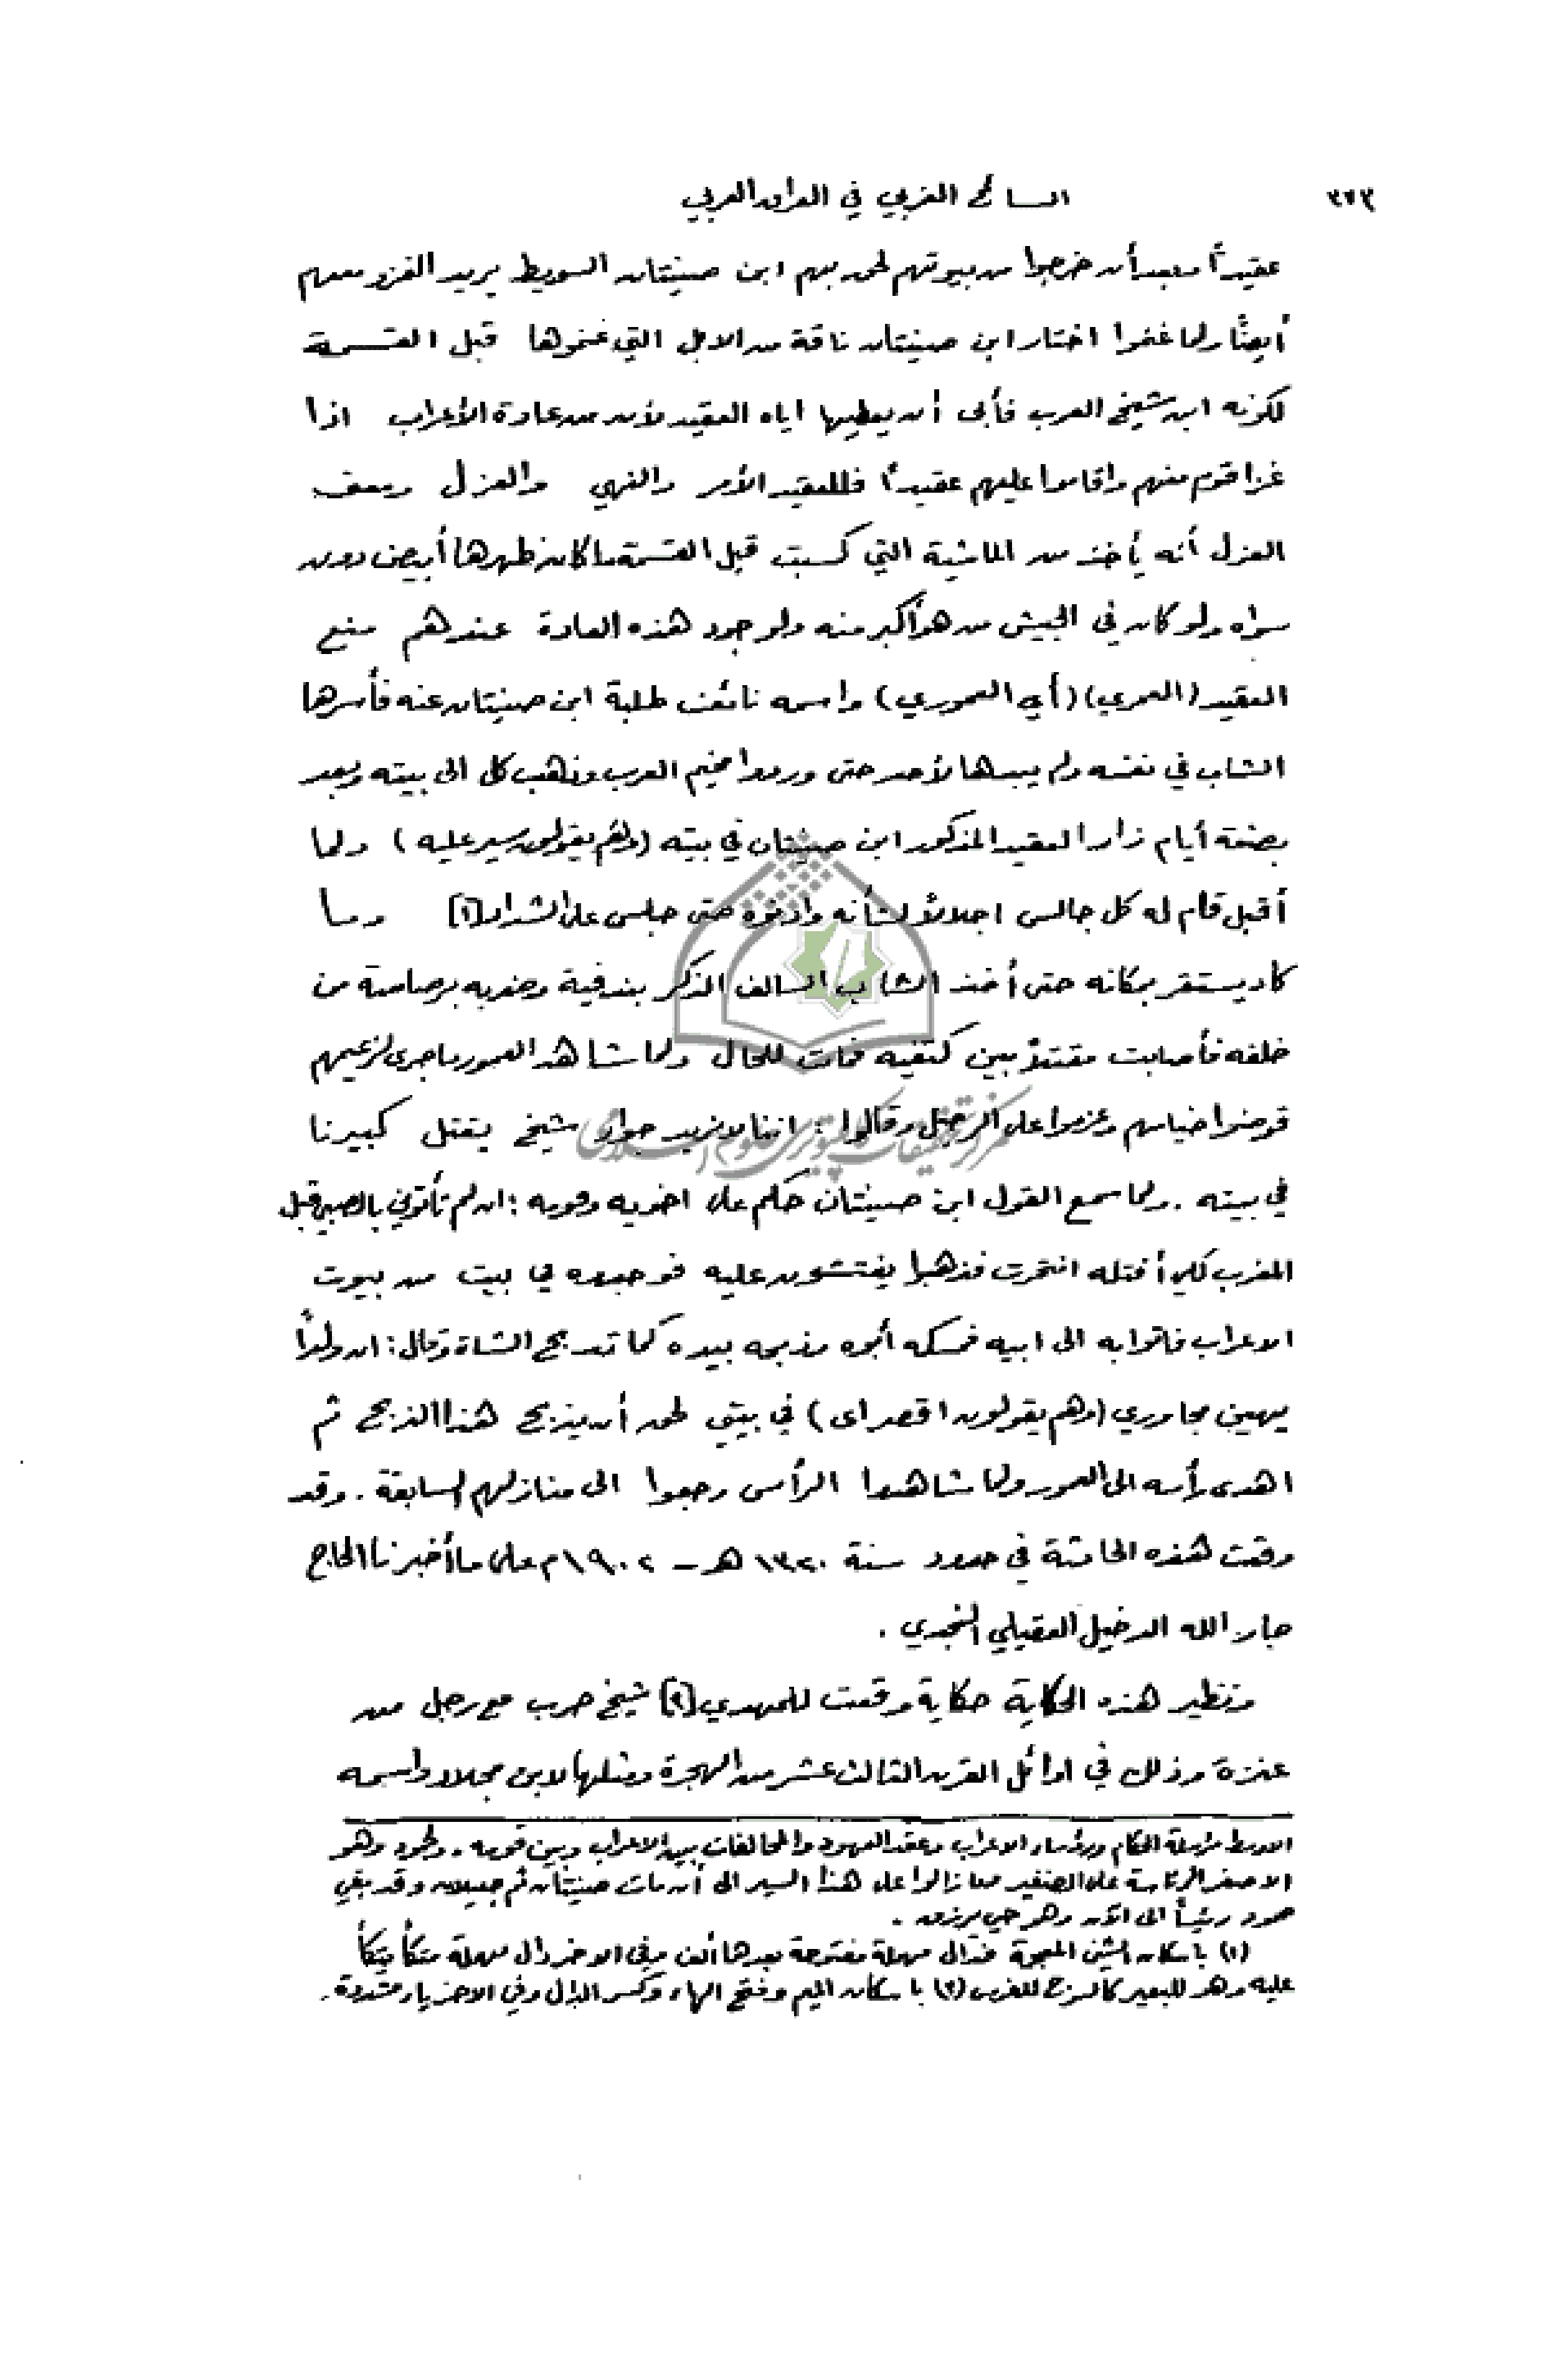 ٣٢٣ السائح الغربي في العراق العربي
عقيداً وبعد أن خرجوا من بيوتهم لحق بهم ابن صنيتان السويط يريد الغزو معهم
أيضاً ولما غنموا اختار ابن صنيتان ناقة من الابل التي غنموها قبل القسمة
لكونه ابن شيخ العرب فأبى أن يعطيها اياه العقيد لأن من عادة الأعراب اذا
غزا قوم منهم واقاموا عليهم عقيداً فللعقيد الأمر والنهي والعزل ومعنى
العزل أنه يأخذ من الماشية التي كسبت قبل القسمة ما كان ظهرها أبيض دون
سواه ولو كان في الجيش من هو أكبر منه ولوجود هذه العادة عندهم منع
العقيد (العمري) (أي العموري) واسمه نائف طلبة ابن صنيتان عنه فأسرها
الشاب في نفسه ولم يبدها لأحد حتى وردوا مخيم العرب وذهب كل الى بيته وبعد
بضعة أيام زار العقيد المذكور ابن صنيتان في بيته (وهم يقولون سير عليه) ولما
أقبل قام له كل جالس اجلالاً لشأنه حتى جلس على الشداد [١] وما
كاد يستقر بمكانه حتى أخذ الشاب السالف الذكر بندقية وضربه برصاصة من
خلفه فأصابت مقتلاً بين كتفيه فمات للحال ولما شاهد العمور ما جرى لزعيمهم
قوضوا خيامهم وعزموا على الرحيل وقالوا : اننا لا نريد جوار شيخ يقتل كبيرنا
في بيته . ولما سمع القول ابن صنيتان حكم على اخويه وقومه : ان لم تأتوني بالصبي قبل
المغرب لكي أقتله انتحرت فذهبوا يفتشون عليه فوجدوه في بيت من بيوت
الاعراب فاتوا به الى ابيه فمسكه أبوه وذبحه بيده كما تذبح الشاة وقال : ان ولداً
يهين مجاوري (وهم يقولون اقصراى) في بيتي لحق أن يذبح هذا الذبح ثم
اهدى رأسه الى العمور ولما شاهدوا الرأس رجعوا الى منازلهم السابقة . وقد
وقعت هذه الحادثة في حدود سنة ١٣٢٠ هـ - ١٩٠٢ م على ما أخبرنا الحاج
جار الله الدخيل العقيلي النجدي .
وتنظير هذه الحكاية حكاية وقعت للمهدي [٢] شيخ حرب مع رجل من
عنزة وذلك في اوائل القرن الثالث عشر من الهجرة ومثلها لابن مجلاد واسمه
الاوسط مراسلة الحكام ورؤساء الاعراب وعقد العهود والمحالفات بين الاعراب وبين قومه . ولحمود وهو
الاصغر الرئاسة على الضفير وما زالوا على هذا السير الى أن مات صنيتان ثم جعيلان وقد بقي
حمود رئيساً الى الآن وهو حي يرزق .
(١) باسكان الشين المعجمة فدال مهملة مفتوحة بعدها ألف وفي الاخر دال مهملة متكأ يتكأ
عليه وهو للبعير كالسرج للفرس (٢) باسكان الميم وفتح الهاء وكسر الدال وفي الاخر ياء مشددة .
مركز تحقيقات كامپيوترى علوم اسلامى